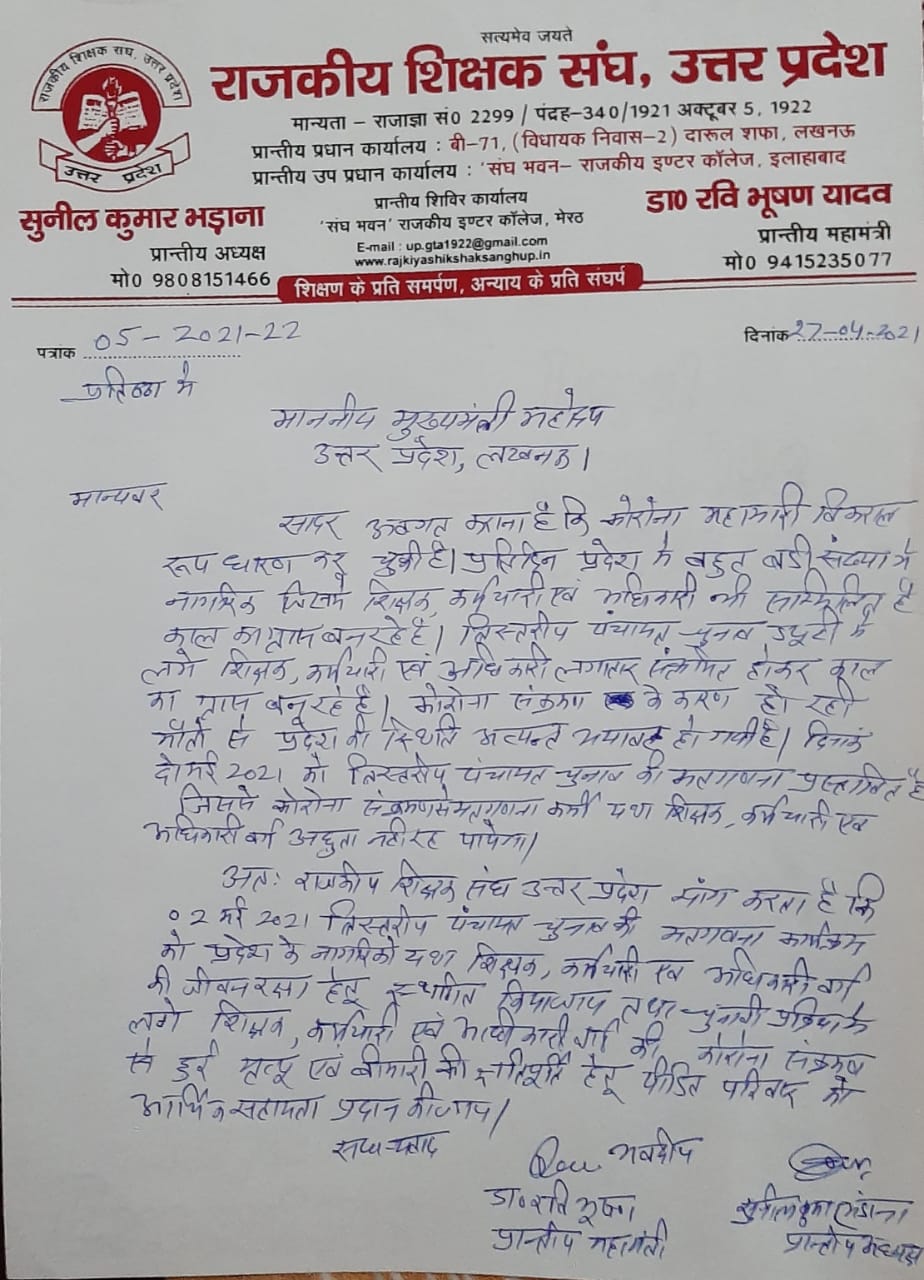 सत्यमेव जयते
राजकीय शिक्षक संघ, उत्तर प्रदेश
राजकीय शिक्षक संघ, उत्तर प्रदेश
उत्तर प्रदेश
मान्यता – राजाज्ञा सं0 2299 / पंद्रह–340/1921 अक्टूबर 5, 1922
प्रान्तीय प्रधान कार्यालय : बी–71, (विधायक निवास–2) दारूल शफा, लखनऊ
प्रान्तीय उप प्रधान कार्यालय : 'संघ भवन– राजकीय इण्टर कॉलेज, इलाहाबाद
सुनील कुमार भड़ाना
प्रान्तीय अध्यक्ष
मो0 9808151466
प्रान्तीय शिविर कार्यालय
'संघ भवन' राजकीय इण्टर कॉलेज, मेरठ
E-mail : up.gta1922@gmail.com
www.rajkiyashikshaksanghup.in
डा0 रवि भूषण यादव
प्रान्तीय महामंत्री
मो0 9415235077
शिक्षण के प्रति समर्पण, अन्याय के प्रति संघर्ष
पत्रांक 05-2021-22
दिनांक 27-04-2021
प्रतिष्ठा मे
माननीय मुख्यमंत्री महोदय
उत्तर प्रदेश, लखनऊ।
मान्यवर
सादर अवगत कराना है कि कोरोना महामारी विकराल
रूप धारण कर चुकी है। प्रतिदिन प्रदेश मे बहुत बडी संख्या मे
नागरिक जिसमे शिक्षक, कर्मचारी एवं अधिकारी भी सम्मिलित है
काल का ग्रास बन रहे है। त्रिस्तरीय पंचायत चुनाव ड्यूटी मे
लगे शिक्षक, कर्मचारी एवं अधिकारी लगातार संक्रमित होकर काल
का ग्रास बन रहे है। कोरोना संक्रमण के कारण हो रही
मौतो से प्रदेश की स्थिति अत्यन्त भयावह हो गयी है। दिनांक
दो मई 2021 को त्रिस्तरीय पंचायत चुनाव की मतगणना प्रस्तावित है
जिसमे कोरोना संक्रमण से मतगणना कर्मी यथा शिक्षक, कर्मचारी एवं
अधिकारी वर्ग अछुता नही रह पायेगा।
अतः राजकीय शिक्षक संघ उत्तर प्रदेश मांग करता है कि
02 मई 2021 त्रिस्तरीय पंचायत चुनाव की मतगणना कार्यक्रम
को प्रदेश के नागरिको यथा शिक्षक, कर्मचारी एवं अधिकारी वर्ग
की जीवन रक्षा हेतु स्थगित किया जाय तथा चुनावी प्रक्रिया मे
लगे शिक्षक, कर्मचारी एवं अधिकारी वर्ग की कोरोना संक्रमण
से हुई मृत्यु एवं बीमारी की क्षतिपूर्ति हेतु पीडित परिवार को
आर्थिक सहायता प्रदान की जाय।
सधन्यवाद
भवदीय
डा० रवि भूषण
प्रान्तीय महामंत्री
सुनील कुमार भड़ाना
प्रान्तीय अध्यक्ष